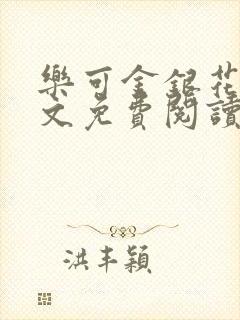 樂可金銀花
文免費閱讀
洪丰穎